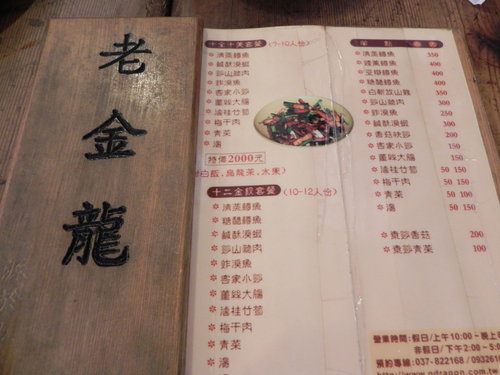 老
金
龍
十全十美套餐 (7~10人份)
清蒸鱒魚
鹹酥溪蝦
炒山豬肉
炸溪魚
客家小炒
薑絲大腸
滷桂竹筍
梅干肉
青菜
湯
特價2000元
(白飯,烏龍茶,水果)
十二金釵套餐 (10-12人份)
清蒸鱒魚
糖醋鱒魚
鹹酥溪蝦
炒山豬肉
炸溪魚
客家小炒
薑絲大腸
滷桂竹筍
梅干肉
青菜
湯
單點
清蒸鱒魚 350
鹽薰鱒魚 400
豆瓣鱒魚 400
白斬放山雞 350
炒山豬肉 300
炸溪魚 250
鹹酥溪蝦 300
香菇映炒 200
客家小炒 150
薑絲大腸 150
滷桂竹筍 50 150
梅干肉 50 150
青菜 50 100
湯 50 150
炒香菇 200
炒青菜 100
營業時間:假日/上午10:00~晚上
非假日/下午2:00~5:0
預約專線:037-822168 / 0932616
http://www.gdragon.com.tw